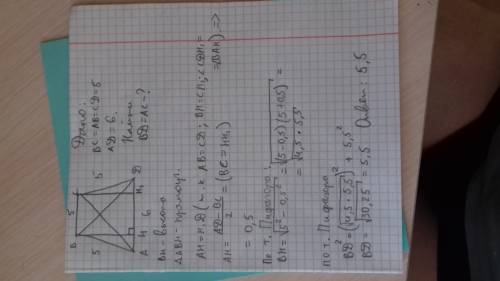 Дано:
BC=AB=CD=5
AD=6.
Найти
BD=AC-?
B 5 C
5 5
A H 6 H₁ D
BH - высота
△ABH - прямоуг.
AH=H₁D (т.к AB=CD; BH=CH₁; ∠CDH₁=
=∠BAH) =>
AH = AD-BC / 2 = (BC=HH₁)
= 0,5
По т. Пифагора:
BH = √5²-0,5² = √(5-0,5)(5+0,5) =
= √4,5·5,5
по т. Пифагора
BD² = (√4,5·5,5)² + 5,5²
BD = √30,25 = 5,5 Ответ: 5,5